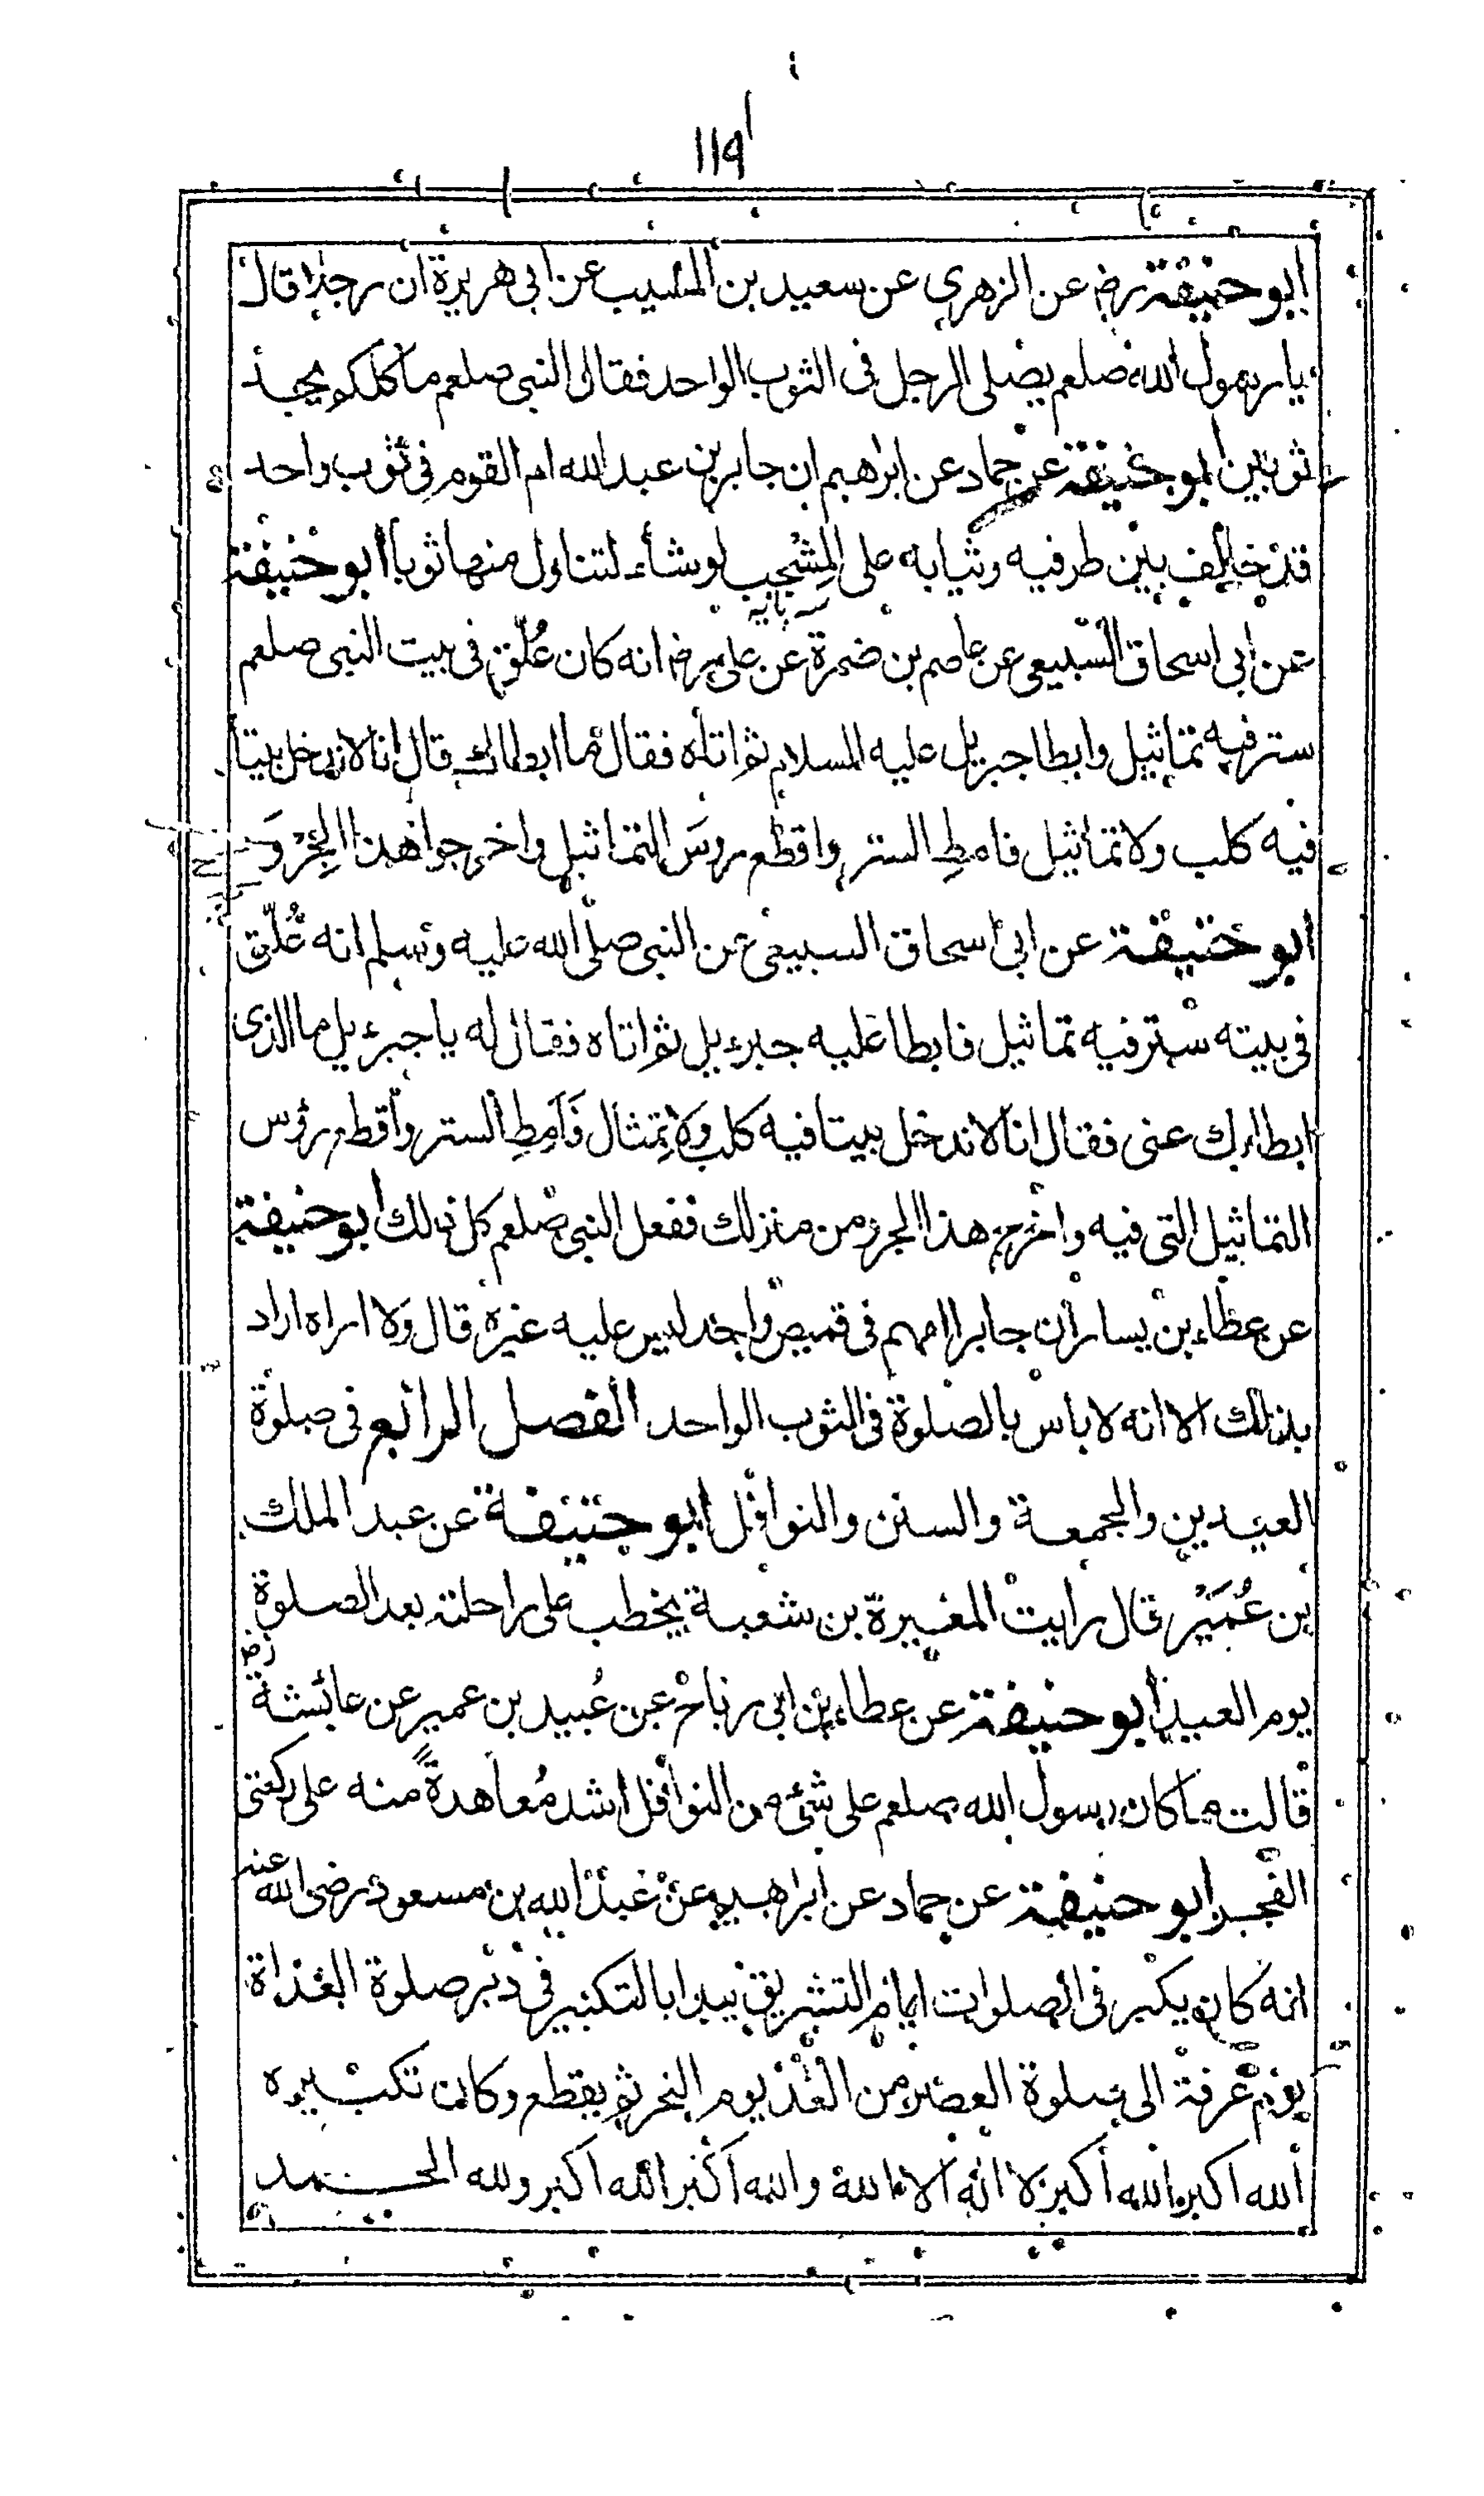 ١١٩
ابو حنيفة رض عن الزهري عن سعيد بن المسيب عن ابى هريرة ان رجلا قال
يا رسول الله صلعم يصلى الرجل فى الثوب الواحد فقال النبى صلعم ما كلكم يجد
ثوبين ابو حنيفة عن حماد عن ابرهيم ان جابر بن عبد الله ام القوم فى ثوب واحد
قد خالف بين طرفيه وثيابه على المِشْجب لو شاء لتناول منها ثوبا ابو حنيفة
عن ابى اسحاق السبيعى عن عاصم بن ضمرة عن على رض انه كان عُلّق فى بيت النبى صلعم
ستر فيه تماثيل وابطا جبريل عليه السلام ثم اتاه فقال ما ابطاك قال انا لا ندخل بيتا
فيه كلب ولا تماثيل فامطِ الستر واقطع روسَ التماثيل واخرجوا هذا الجِرْوَ
ابو حنيفة عن ابى اسحاق السبيعى عن النبى صلى الله عليه وسلم انه عُلّق
فى بيته ستر فيه تماثيل فابطا عليه جبرءيل ثم اتاه فقال له يا جبرءيل ما الذى
ابطاءبك عنى فقال انا لا ندخل بيتا فيه كلب ولا تِمثال فَاَمِطِ الستر واقطع رؤس
التماثيل التى فيه واخرج هذا الجرو من منزلك ففعل النبى صلعم كل ذلك ابو حنيفة
عن عطاء بن يسار ان جابرا امهم فى قميص واحد ليس عليه غيره قال ولا اراه اراد
بذلك الا انه لا باس بالصلوة فى الثوب الواحد الفصل الرابع فى صلوة
العيدين والجمعة والسنن والنوافل ابو حنيفة عن عبد الملك
بن عُمَيْر قال رايت المغيرة بن شعبة يخطب على راحلته بعد الصلوة
يوم العيد ابو حنيفة عن عطاء بن ابى رباح عن عُبيد بن عمير عن عائشة رض
قالت ما كان رسول الله صلعم على شئ من النوافل اشد مُعاهدةً منه على ركعتى
الفجر ابو حنيفة عن حماد عن ابراهيم عن عبد الله بن مسعود رضى الله عنه
انه كان يكبر فى الصلوات ايام التشريق يبدا بالتكبير فى دبر صلوة الغداة
يوم عرفة الى صلوة العصر من الغد يوم النحر ثم يقطع وكان تكبيره
الله اكبر الله اكبر لا اله الا الله والله اكبر الله اكبر ولله الحمد